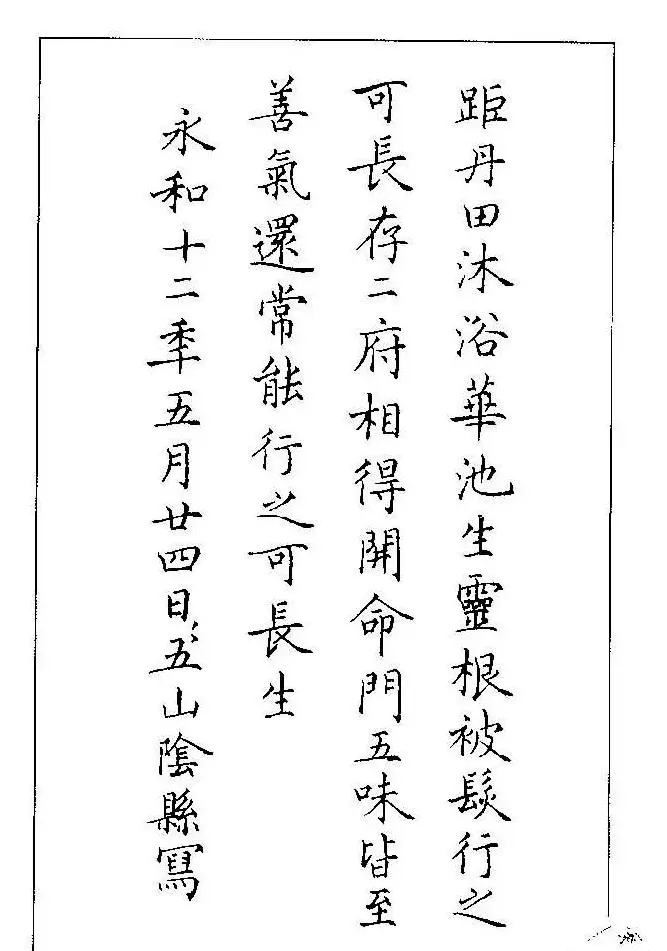 距丹田沐浴華池生靈根被髮行之
可長存二府相得開命門五味皆至
善氣還常能行之可長生
永和十二秊五月廿四日五山陰縣寫